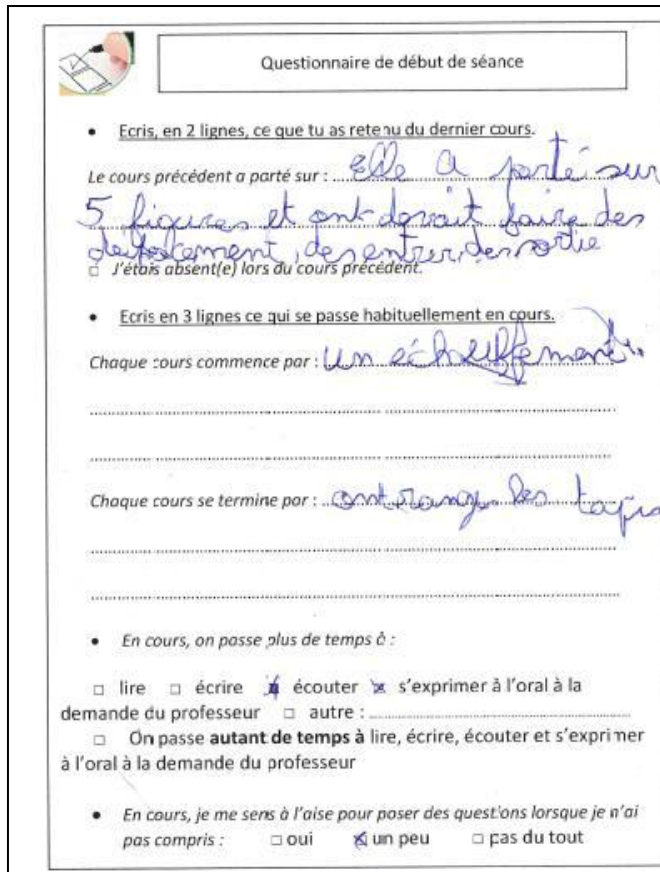 Questionnaire de début de séance
• Ecris, en 2 lignes, ce que tu as retenu du dernier cours.
Le cours précédent a parté sur : Elle a parté sur
5 figures et ont devait faire des
deplacement, des entrer, des sortie
□ J'étais absent(e) lors du cours précédent.
• Ecris en 3 lignes ce qui se passe habituellement en cours.
Chaque cours commence par : un échauffement.
Chaque cours se termine par : ont range les tapis
• En cours, on passe plus de temps à :
□ lire □ écrire ☒ écouter ☒ s'exprimer à l'oral à la
demande du professeur □ autre :
□ On passe autant de temps à lire, écrire, écouter et s'exprimer
à l'oral à la demande du professeur
• En cours, je me sens à l'aise pour poser des questions lorsque je n'ai
pas compris : □ oui ☒ un peu □ pas du tout